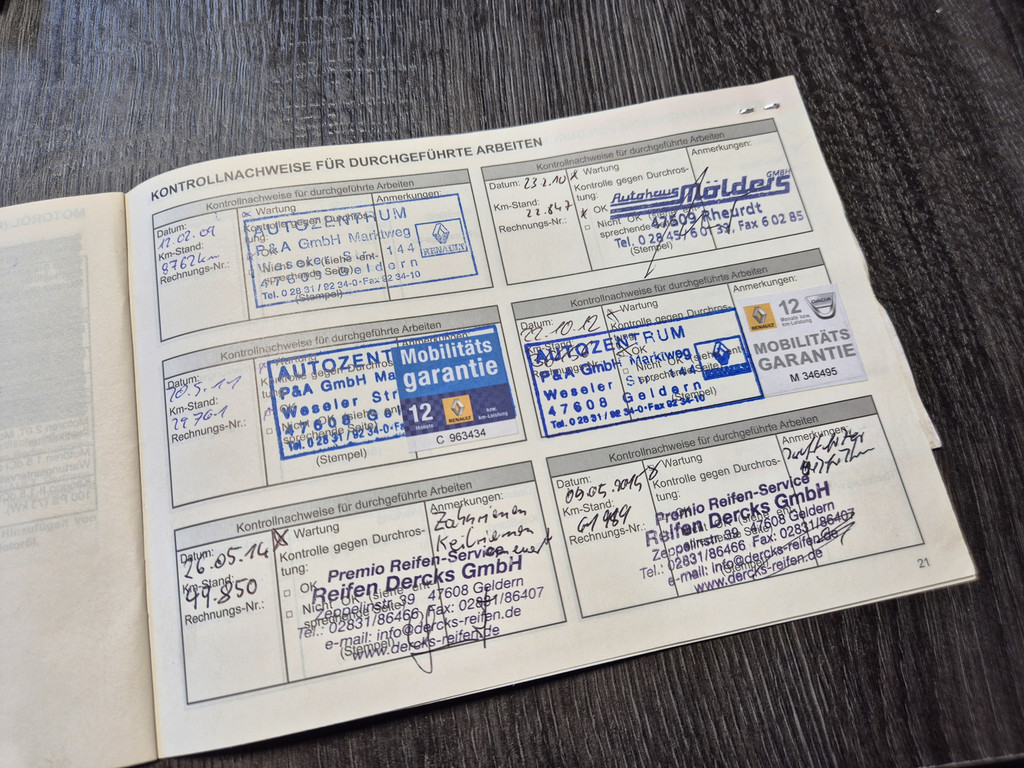 KONTROLLNACHWEISE FÜR DURCHGEFÜHRTE ARBEITEN
Kontrollnachweise für durchgeführte Arbeiten
Datum:
12.02.09
Km-Stand:
9762km
Rechnungs-Nr.:
Wartung
Kontrolle gegen Durchros-
tung:
OK
Anmerkungen:
AUTOZENTRUM
P&A GmbH Marktweg
Weseler Str. 144
47608 Geldern
Tel. 0 28 31 / 92 34-0 · Fax 92 34-10
RENAULT
(Stempel)
Kontrollnachweise für durchgeführte Arbeiten
Datum: 23.2.10
Km-Stand:
22.847
Rechnungs-Nr.:
Wartung
Kontrolle gegen Durchros-
tung:
OK
Nicht OK (siehe ent-
sprechende Seite)
Anmerkungen:
Autohaus Mölders GMBH
47509 Rheurdt
Tel. 0 28 45 / 6 01 39, Fax 6 02 85
(Stempel)
Kontrollnachweise für durchgeführte Arbeiten
Datum:
10.5.11
Km-Stand:
Rechnungs-Nr.:
Wartung
AUTOZENT
P&A GmbH Ma
Weseler Str
47608 Ge
Tel. 0 28 31 / 92 34-0 · Fa
(Stempel)
Mobilitäts
garantie
12
Monate
RENAULT
bzw.
km-Leistung
C 963434
Kontrollnachweise für durchgeführte Arbeiten
Datum:
22.10.12
Km-Stand
Wartung
Kontrolle gegen Durchros-
Anmerkungen:
AUTOZENTRUM
P&A GmbH Marktweg
Weseler Str. 144
47608 Geldern
Tel. 0 28 31 / 92 34-0 · Fax 92 34-10
(Stempel)
RENAULT
12
Monate bzw.
km-Leistung
DACIA
MOBILITÄTS
GARANTIE
M 346495
Kontrollnachweise für durchgeführte Arbeiten
Datum:
26.05.14
Km-Stand:
49.850
Rechnungs-Nr.:
Wartung
Kontrolle gegen Durchros-
tung:
OK
Nicht OK (siehe ent-
sprechende Seite)
Anmerkungen:
Zahnriemen
Keilriemen
Premio Reifen-Service
Reifen Dercks GmbH
Zeppelinstr. 39 47608 Geldern
Tel.: 02831/86466, Fax: 02831/86407
e-mail: info@dercks-reifen.de
www.dercks-reifen.de
(Stempel)
Kontrollnachweise für durchgeführte Arbeiten
Datum:
09.05.2015
Km-Stand:
61989
Rechnungs-Nr.:
Wartung
Kontrolle gegen Durchros-
tung:
Anmerkungen:
Premio Reifen-Service
Reifen Dercks GmbH
Zeppelinstr. 39 47608 Geldern
Tel.: 02831/86466, Fax: 02831/86407
e-mail: info@dercks-reifen.de
www.dercks-reifen.de
21